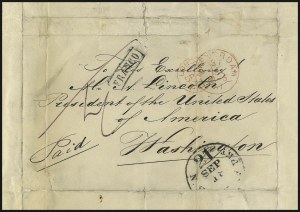 FRANCO
To his Excellency
M. A. Lincoln
President of the United States
of America
Washington
Paid
21
SEP